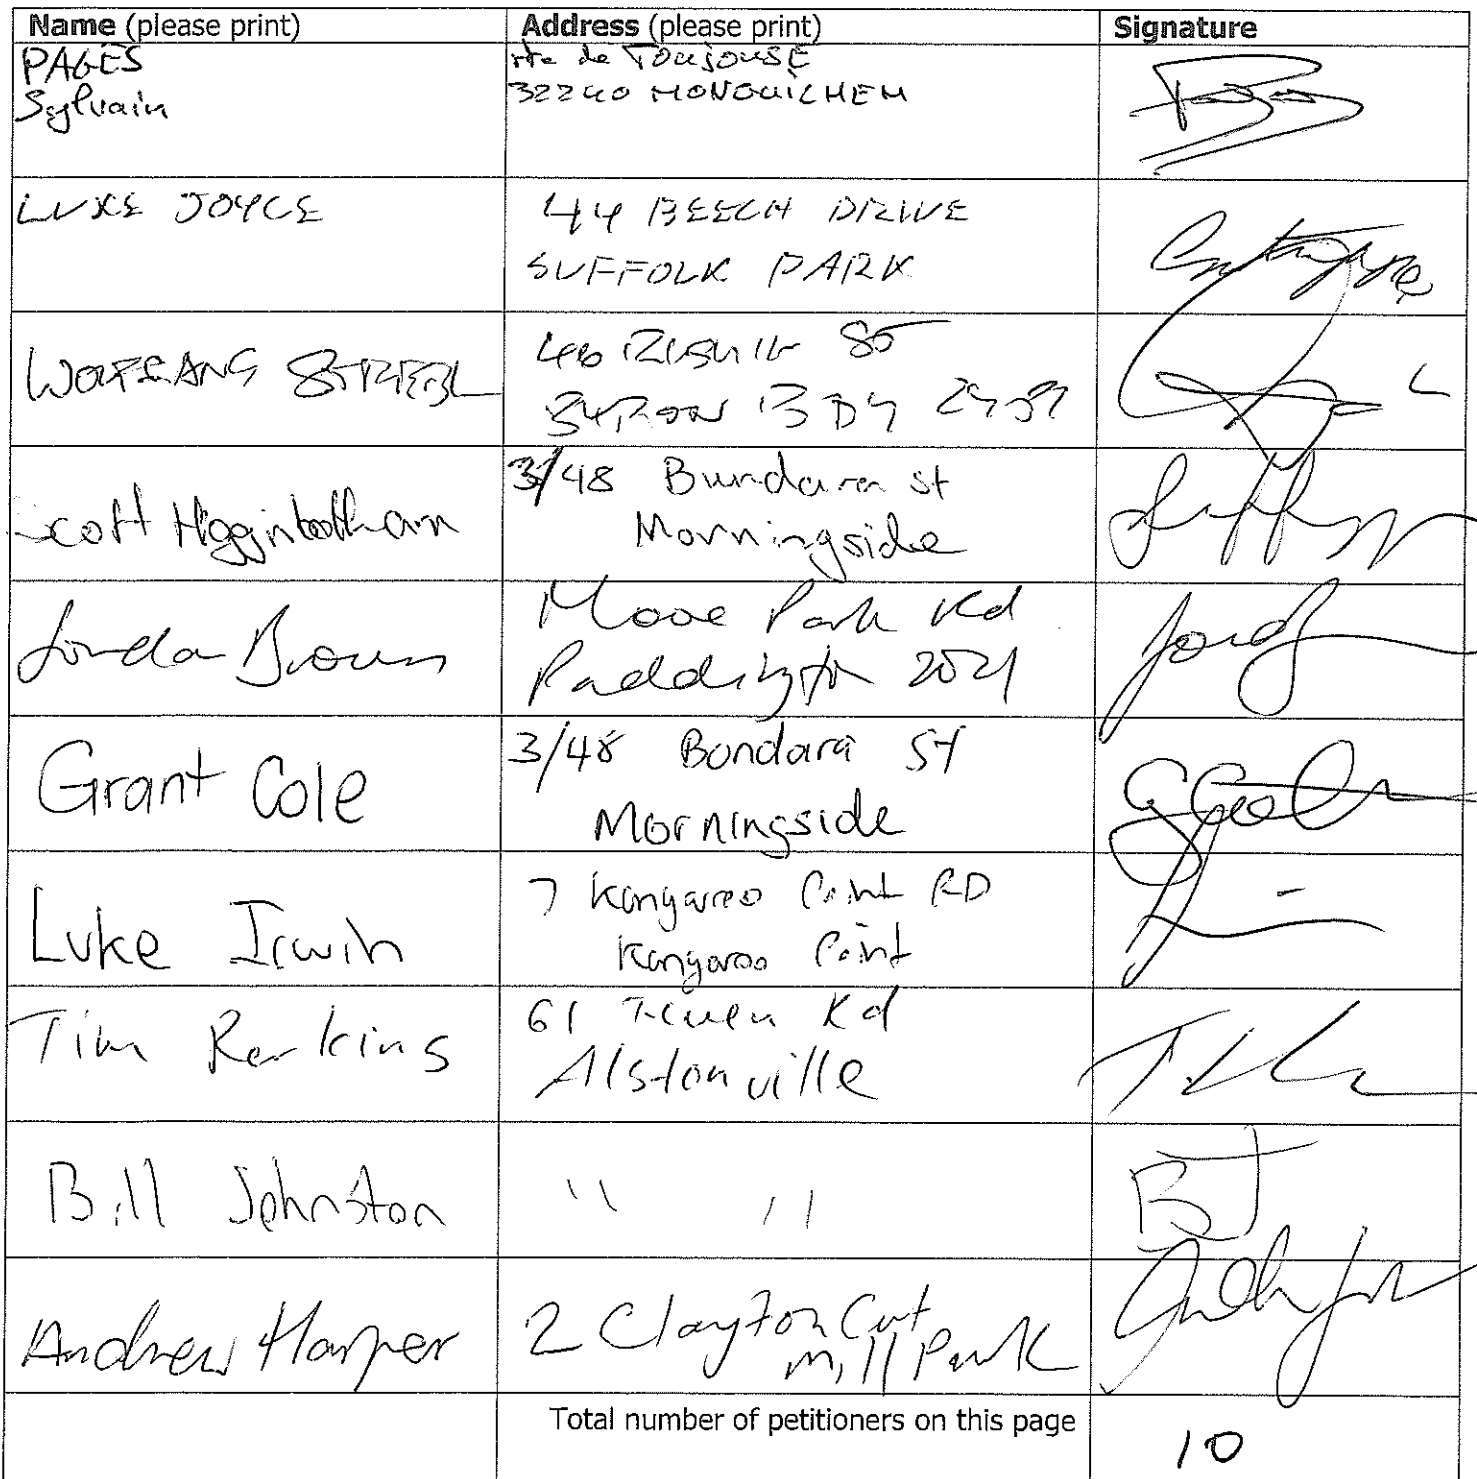 Name (please print) Address (please print) Signature
PAGES
Sylvain
rte de TOUJOUSE
32240 MONGUILHEM
LUKE JOYCE
44 BEECH DRIVE
SUFFOLK PARK
WOLFGANG
46 ST
BYRON BAY 2481
Scott Higginbotham
3/48 Bundara st
Morningside
Brown
Moore Park Rd
Paddington 2021
Grant Cole
3/48 Bundara St
Morningside
Luke Irwin
7 Kangaroo Point RD
Kangaroo Point
Tim Perkins
61 Teven Rd
Alstonville
Bill Johnston
" "
BJ
Andrew Harper
2 Clayton Crt
Mill Park
Total number of petitioners on this page
10